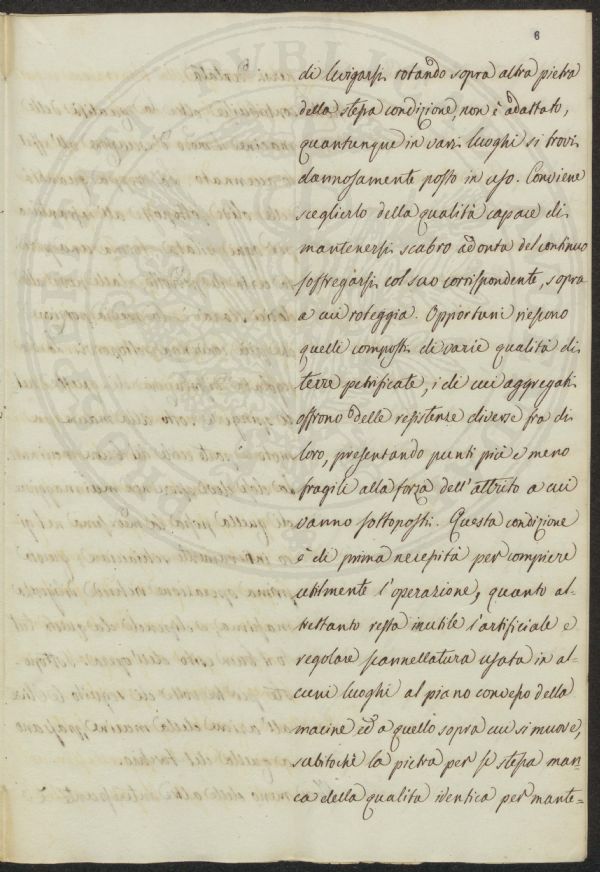 6
di levigarsi rotando sopra altra pietra
della stessa condizione, non è adattato,
quantunque in varj luoghi si trovi
dannosamente posto in uso. Conviene
sceglierlo della qualità capace di
mantenersi scabro ad onta del continuo
soffregarsi col suo corrispondente, sopra
a cui roteggia. Opportuni riescono
quelli composti di varie qualità di
terre petrificate, i di cui aggregati
offrono delle resistenze diverse fra di
loro, presentando punti più e meno
fragili alla forza dell'attrito a cui
vanno sottoposti. Questa condizione
è di prima necessità per compiere
utilmente l'operazione, quanto al-
trettanto resta inutile l'artificiale e
regolare scannellatura usata in al-
cuni luoghi al piano convesso della
macine ed a quello sopra cui si muove,
subitochè la pietra per se stessa man-
ca della qualità identica per mante=